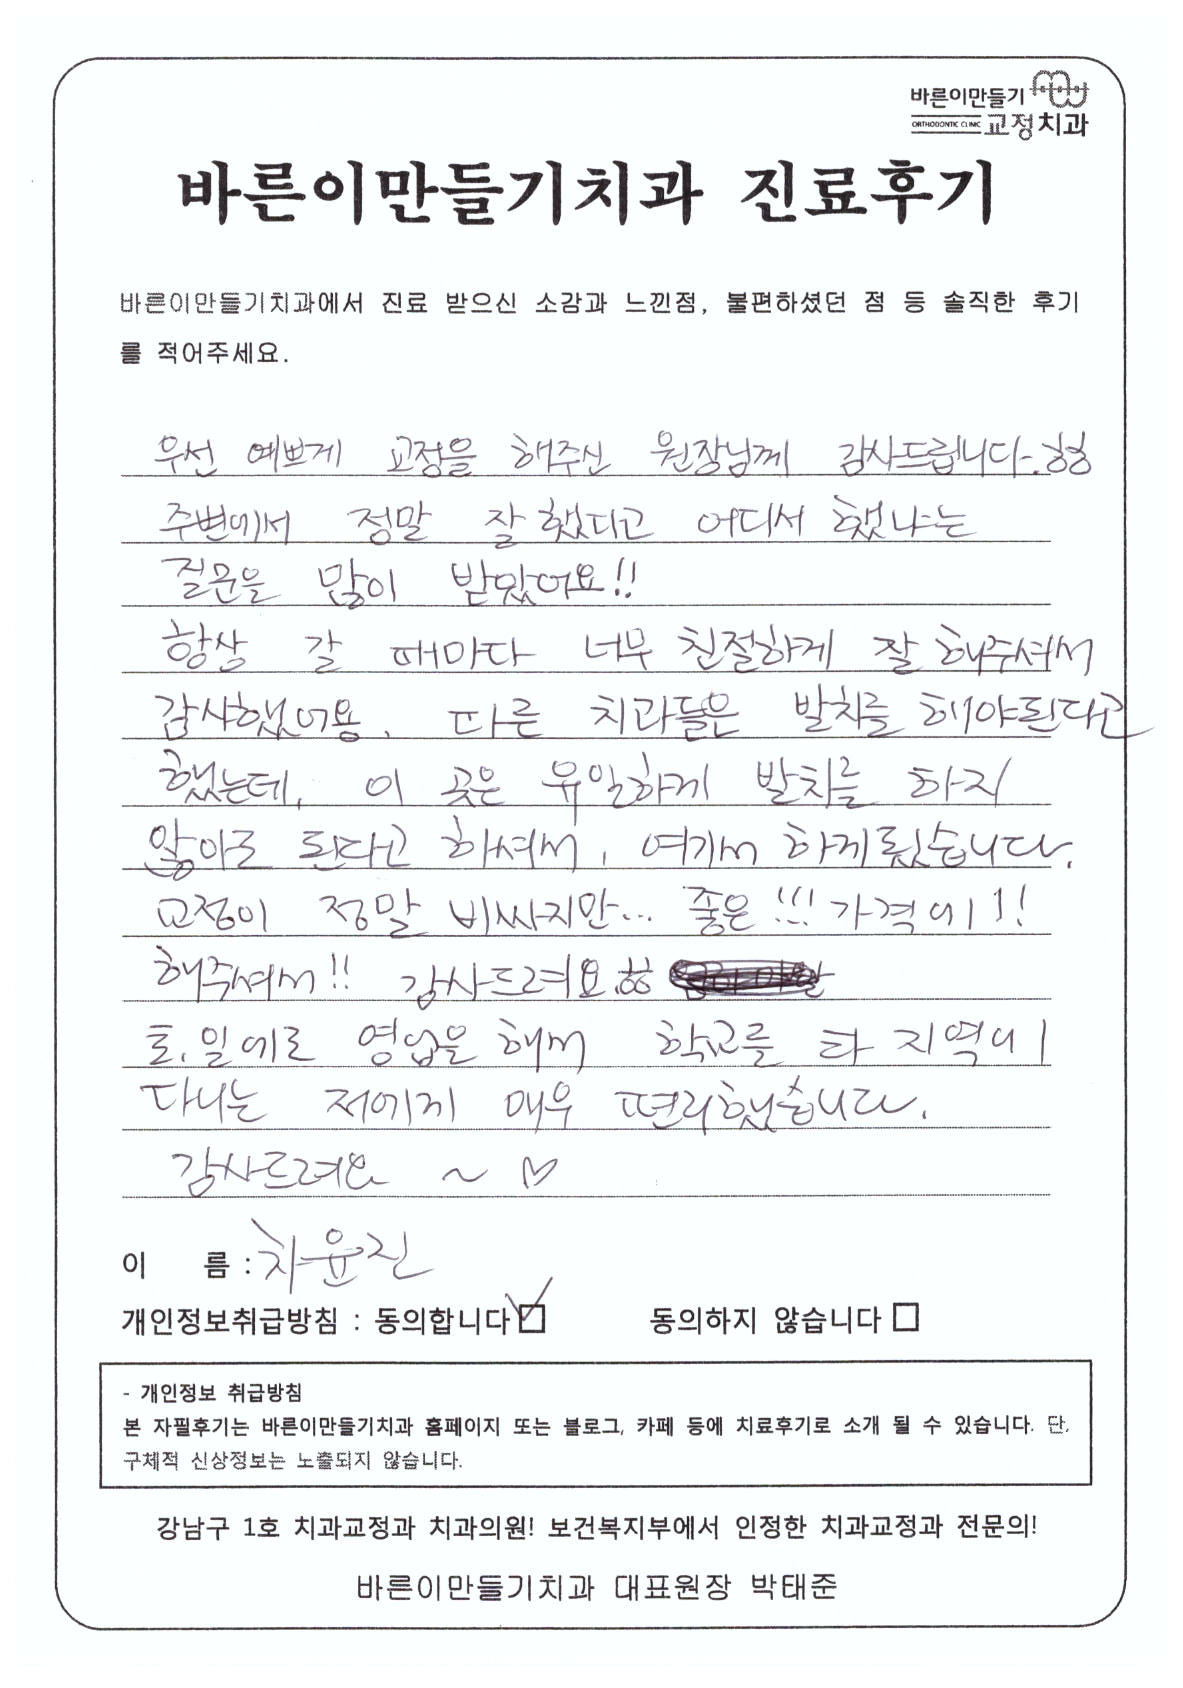 바른이만들기
ORTHODONTIC CLINIC 교정치과
바른이만들기치과 진료후기
바른이만들기치과에서 진료 받으신 소감과 느낀점, 불편하셨던 점 등 솔직한 후기
를 적어주세요.
우선 예쁘게 교정을 해주신 원장님께 감사드립니다. 헝헝
주변에서 정말 잘 했다고 어디서 했냐는
질문을 많이 받았어요!!
항상 갈 때마다 너무 친절하게 잘 해주셔서
감사했어용. 다른 치과들은 발치를 해야된다고
했는데, 이 곳은 유일하게 발치를 하지
않아도 된다고 하셔서, 여기서 하게됬습니다.
교정이 정말 비싸지만... 좋은!!! 가격에!!
해주셔서!! 감사드려요
토,일에도 영업을 해서 학교를 타 지역에
다니는 저에게 매우 편리했습니다.
감사드려요 ~ ♡
이 름 : 차윤진
개인정보취급방침 : 동의합니다 ☑ 동의하지 않습니다 □
- 개인정보 취급방침
본 자필후기는 바른이만들기치과 홈페이지 또는 블로그, 카페 등에 치료후기로 소개 될 수 있습니다. 단,
구체적 신상정보는 노출되지 않습니다.
강남구 1호 치과교정과 치과의원! 보건복지부에서 인정한 치과교정과 전문의!
바른이만들기치과 대표원장 박태준